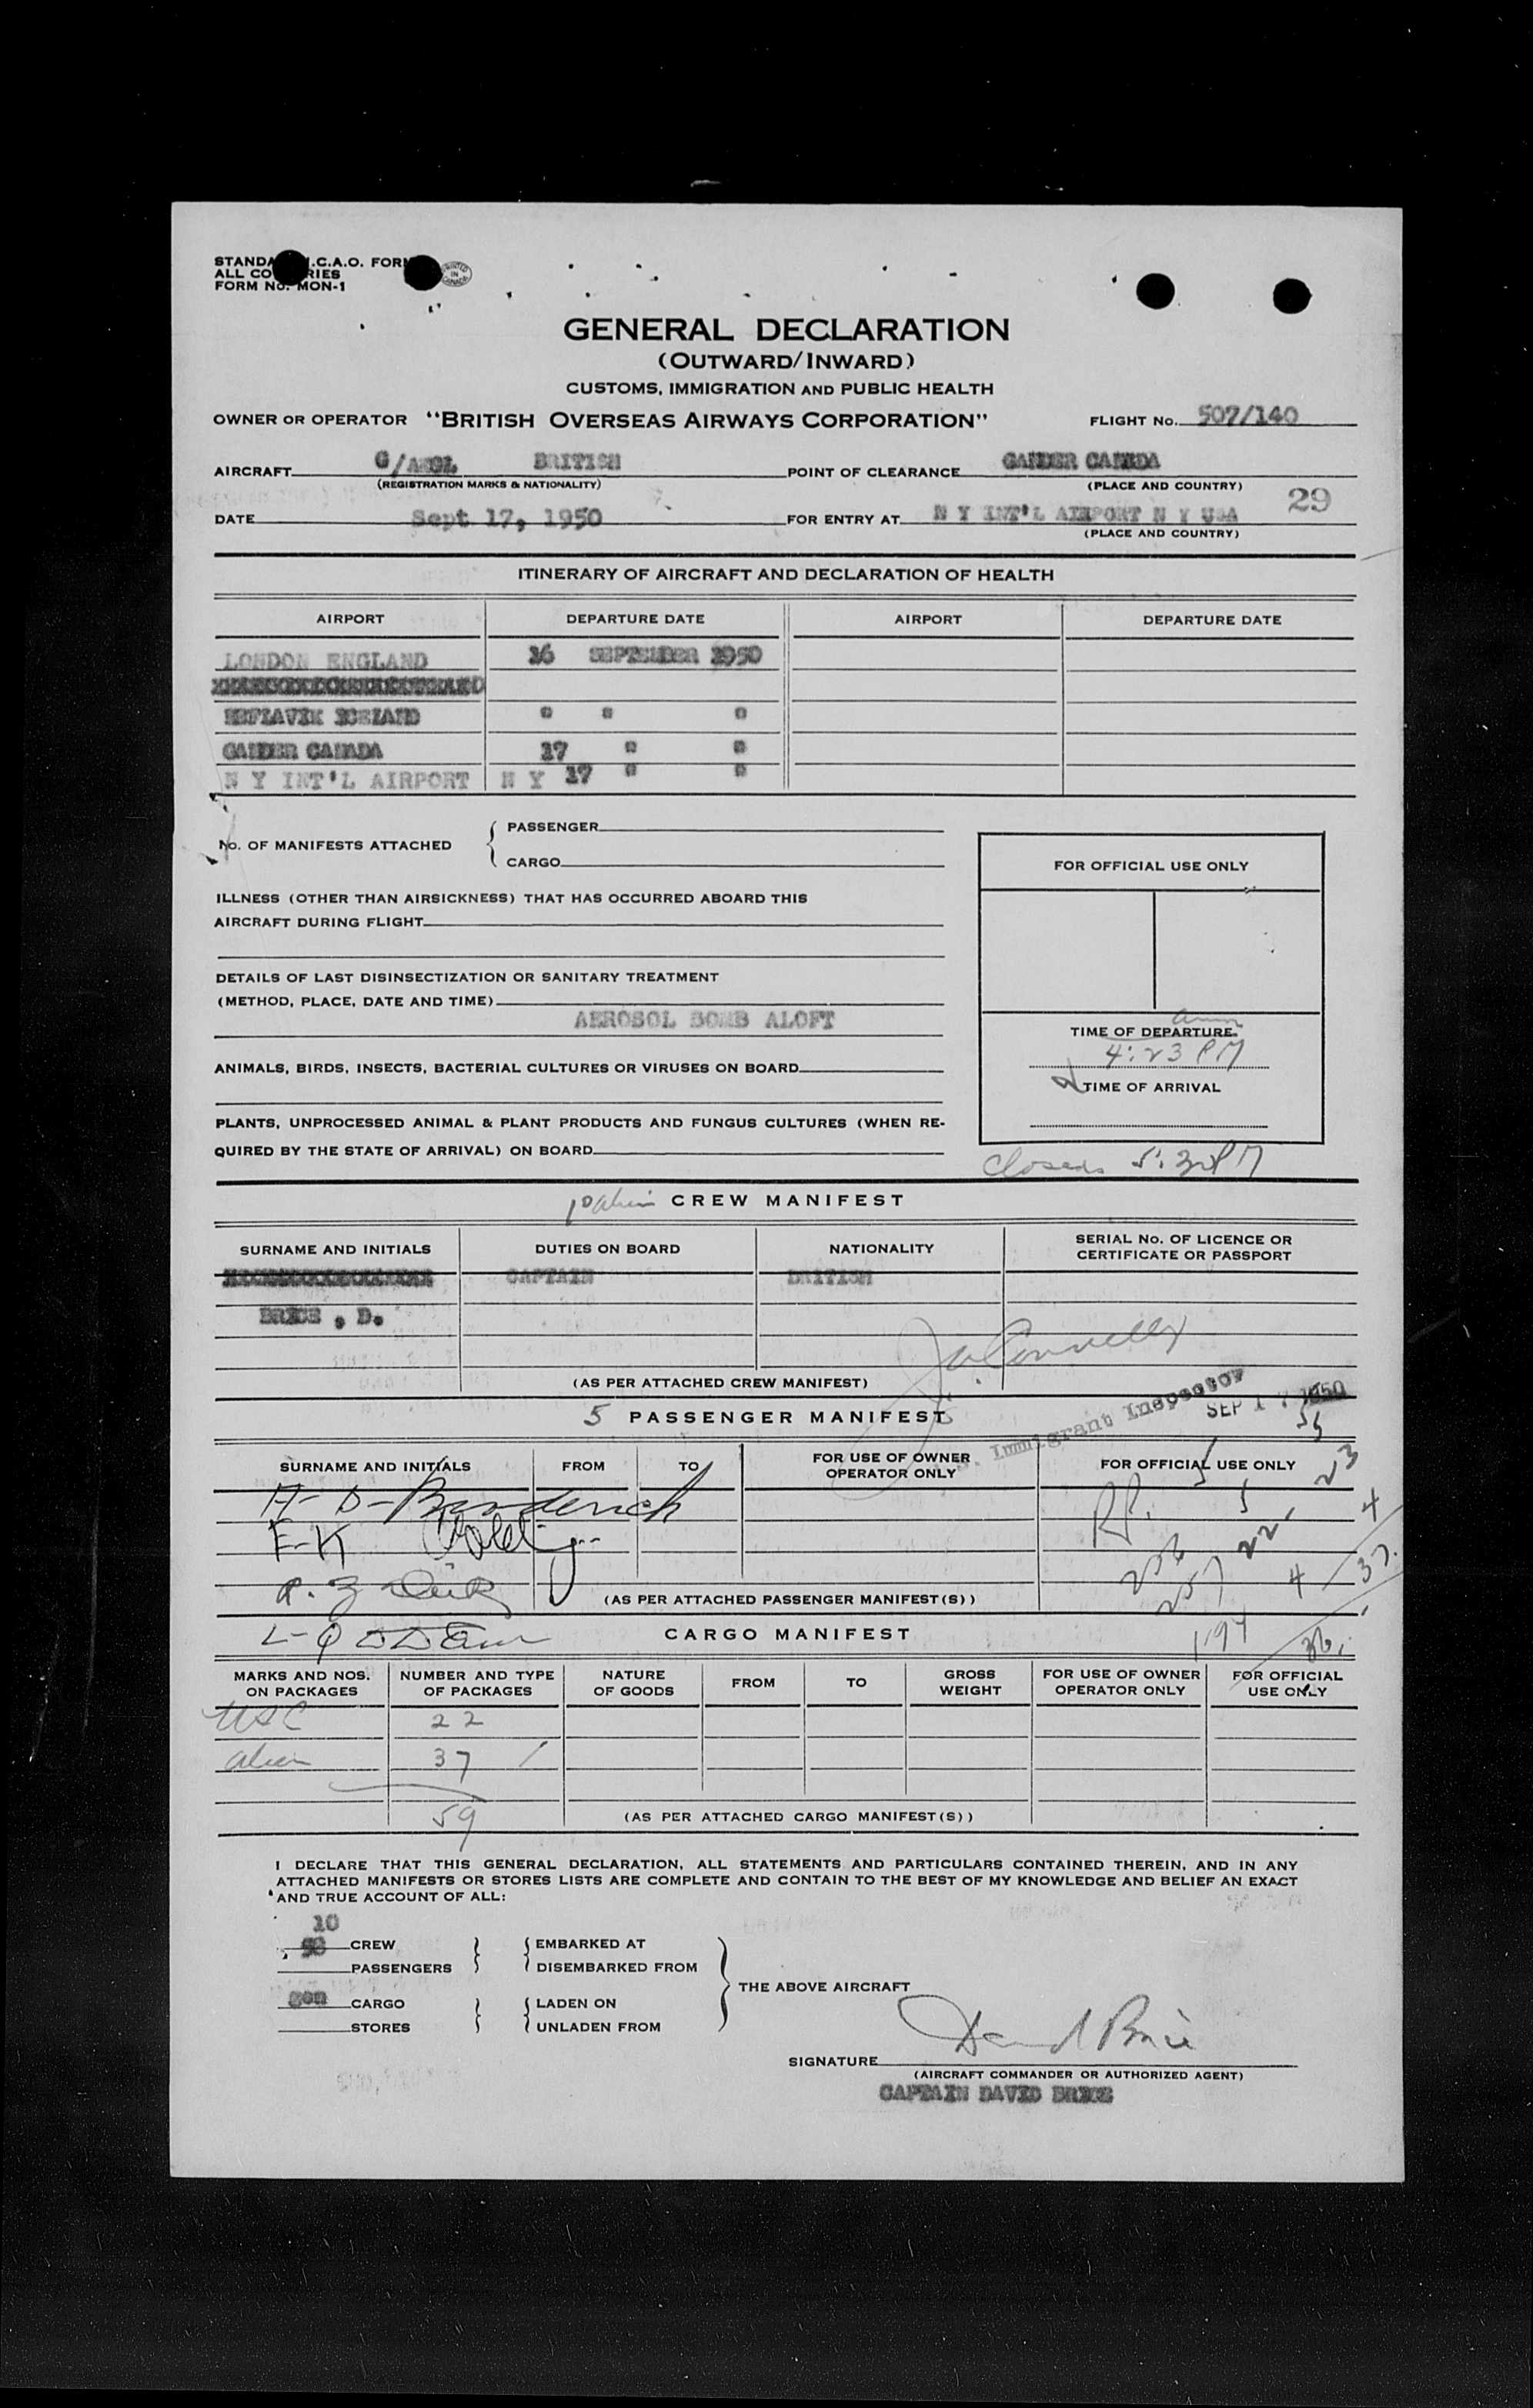 STANDA .C.A.O. FORM
ALL CO RIES
FORM No. MON-1
PRINTED IN CANADA
GENERAL DECLARATION
(OUTWARD/INWARD)
CUSTOMS, IMMIGRATION AND PUBLIC HEALTH
OWNER OR OPERATOR "BRITISH OVERSEAS AIRWAYS CORPORATION" FLIGHT No. 507/140
AIRCRAFT BRITISH POINT OF CLEARANCE GANDER CANADA
(REGISTRATION MARKS & NATIONALITY) (PLACE AND COUNTRY)
29
DATE Sept 17, 1950 FOR ENTRY AT N Y INT'L AIRPORT N Y USA
(PLACE AND COUNTRY)
ITINERARY OF AIRCRAFT AND DECLARATION OF HEALTH
AIRPORT DEPARTURE DATE AIRPORT DEPARTURE DATE
LONDON ENGLAND 16 SEPTEMBER 1950
KEFLAVIK ICELAND " " "
GANDER CANADA 17 " "
N Y INT'L AIRPORT N Y 17 " "
No. OF MANIFESTS ATTACHED { PASSENGER
CARGO
FOR OFFICIAL USE ONLY
ILLNESS (OTHER THAN AIRSICKNESS) THAT HAS OCCURRED ABOARD THIS
AIRCRAFT DURING FLIGHT
DETAILS OF LAST DISINSECTIZATION OR SANITARY TREATMENT
(METHOD, PLACE, DATE AND TIME)
AEROSOL BOMB ALOFT
TIME OF DEPARTURE
4:23 PM
TIME OF ARRIVAL
ANIMALS, BIRDS, INSECTS, BACTERIAL CULTURES OR VIRUSES ON BOARD
PLANTS, UNPROCESSED ANIMAL & PLANT PRODUCTS AND FUNGUS CULTURES (WHEN RE-
QUIRED BY THE STATE OF ARRIVAL) ON BOARD
Closed
10 alien CREW MANIFEST
SURNAME AND INITIALS DUTIES ON BOARD NATIONALITY SERIAL No. OF LICENCE OR
CERTIFICATE OR PASSPORT
CAPTAIN BRITISH
BRICE , D.
(AS PER ATTACHED CREW MANIFEST)
Immigrant Inspector
SEP 17 1950
5 PASSENGER MANIFEST
SURNAME AND INITIALS FROM TO FOR USE OF OWNER
OPERATOR ONLY FOR OFFICIAL USE ONLY
(AS PER ATTACHED PASSENGER MANIFEST(S))
CARGO MANIFEST
MARKS AND NOS.
ON PACKAGES NUMBER AND TYPE
OF PACKAGES NATURE
OF GOODS FROM TO GROSS
WEIGHT FOR USE OF OWNER
OPERATOR ONLY FOR OFFICIAL
USE ONLY
USC 22
alien 37
59
(AS PER ATTACHED CARGO MANIFEST(S))
I DECLARE THAT THIS GENERAL DECLARATION, ALL STATEMENTS AND PARTICULARS CONTAINED THEREIN, AND IN ANY
ATTACHED MANIFESTS OR STORES LISTS ARE COMPLETE AND CONTAIN TO THE BEST OF MY KNOWLEDGE AND BELIEF AN EXACT
AND TRUE ACCOUNT OF ALL:
10
CREW EMBARKED AT
PASSENGERS DISEMBARKED FROM
THE ABOVE AIRCRAFT
CARGO LADEN ON
STORES UNLADEN FROM
David Brice
SIGNATURE
(AIRCRAFT COMMANDER OR AUTHORIZED AGENT)
CAPTAIN DAVID BRICE